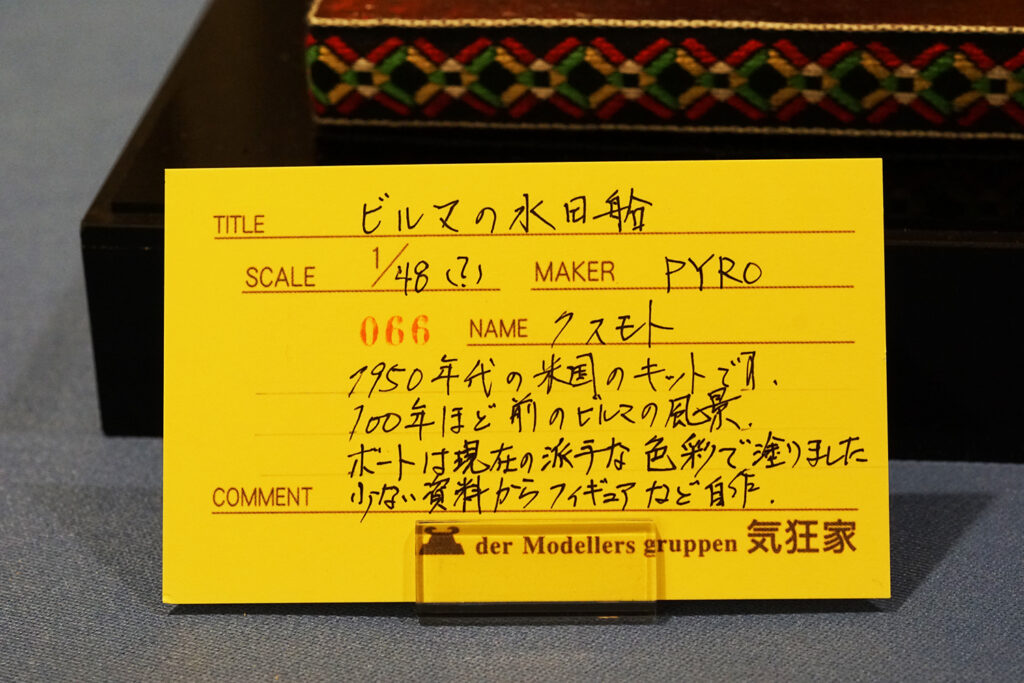 TITLE ビルマの水田船
SCALE 1/48(?) MAKER PYRO
066 NAME クスモト
1950年代の米国のキットです.
100年ほど前のビルマの風景.
ボートは現在の派手な色彩で塗りました
COMMENT 少ない資料からフィギュアなど自作.
der Modellers gruppen 気狂家